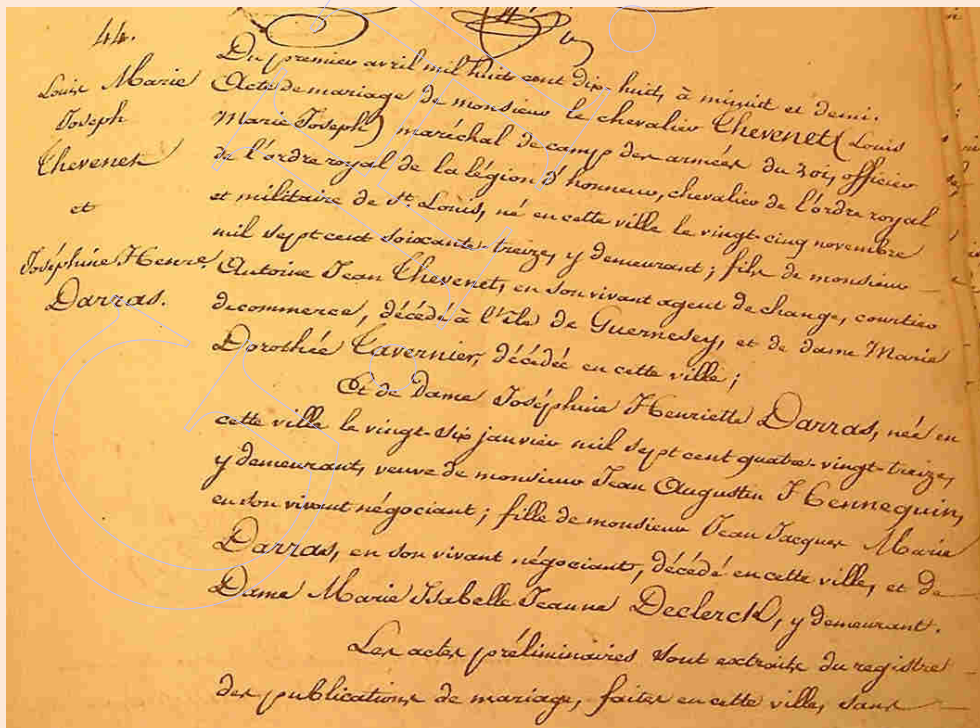 44.
Louis Marie
Joseph
Chevenet
et
Joséphine Henre.
Darras.
Du premier avril mil huit cent dix-huit, à minuit et demi.
Acte de mariage de monsieur le chevalier Chevenet (Louis
Marie Joseph) maréchal de camp des armées du roi, officier
de l'ordre royal de la légion d'honneur, chevalier de l'ordre royal
et militaire de St Louis, né en cette ville le vingt-cinq novembre
mil sept cent soixante-treize, y demeurant ; fils de monsieur
Antoine Jean Chevenet, en son vivant agent de change, courtier
de commerce, décédé à l'île de Guernesey, et de dame Marie
Dorothée Tavernier, décédée en cette ville ;
Et de Dame Joséphine Henriette Darras, née en
cette ville le vingt-six janvier mil sept cent quatre-vingt-treize,
y demeurant, veuve de monsieur Jean Augustin Hennequin,
en son vivant négociant ; fille de monsieur Jean Jacques Marie
Darras, en son vivant négociant, décédé en cette ville, et de
Dame Marie Isabelle Jeanne Declerck, y demeurant.
Les actes préliminaires sont extraits du registre
des publications de mariage, faites en cette ville, sans